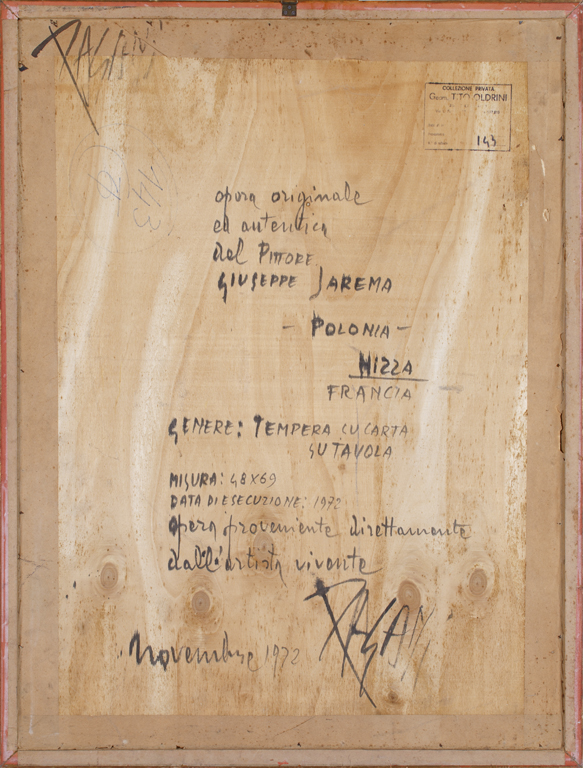 PAGANI
COLLEZIONE PRIVATA
Geom. TITO OLDRINI
143
143
opera originale
ed autentica
del PITTORE
GIUSEPPE JAREMA
- POLONIA -
NIZZA
FRANCIA
GENERE: TEMPERA SU CARTA
SU TAVOLA
MISURA: 48X69
DATA DI ESECUZIONE: 1972
opera proveniente direttamente
dall'artista vivente
novembre 1972
PAGANI